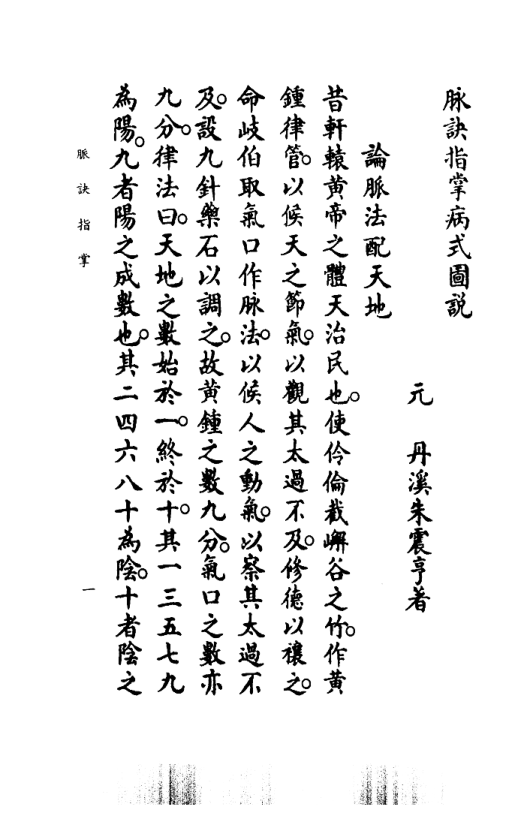 脉訣指掌病式圖説
元　丹溪朱震亨著
論脈法配天地
昔軒轅黃帝之體天治民也。使伶倫截嶰谷之竹。作黃
鍾律管。以候天之節氣。以觀其太過不及。修德以禳之。
命岐伯取氣口作脉法。以候人之動氣。以察其太過不
及。設九針藥石以調之。故黃鍾之數九分。氣口之數亦
九分。律法曰。天地之數始於一。終於十。其一三五七九
為陽。九者陽之成數也。其二四六八十為陰。十者陰之
脈訣指掌
一